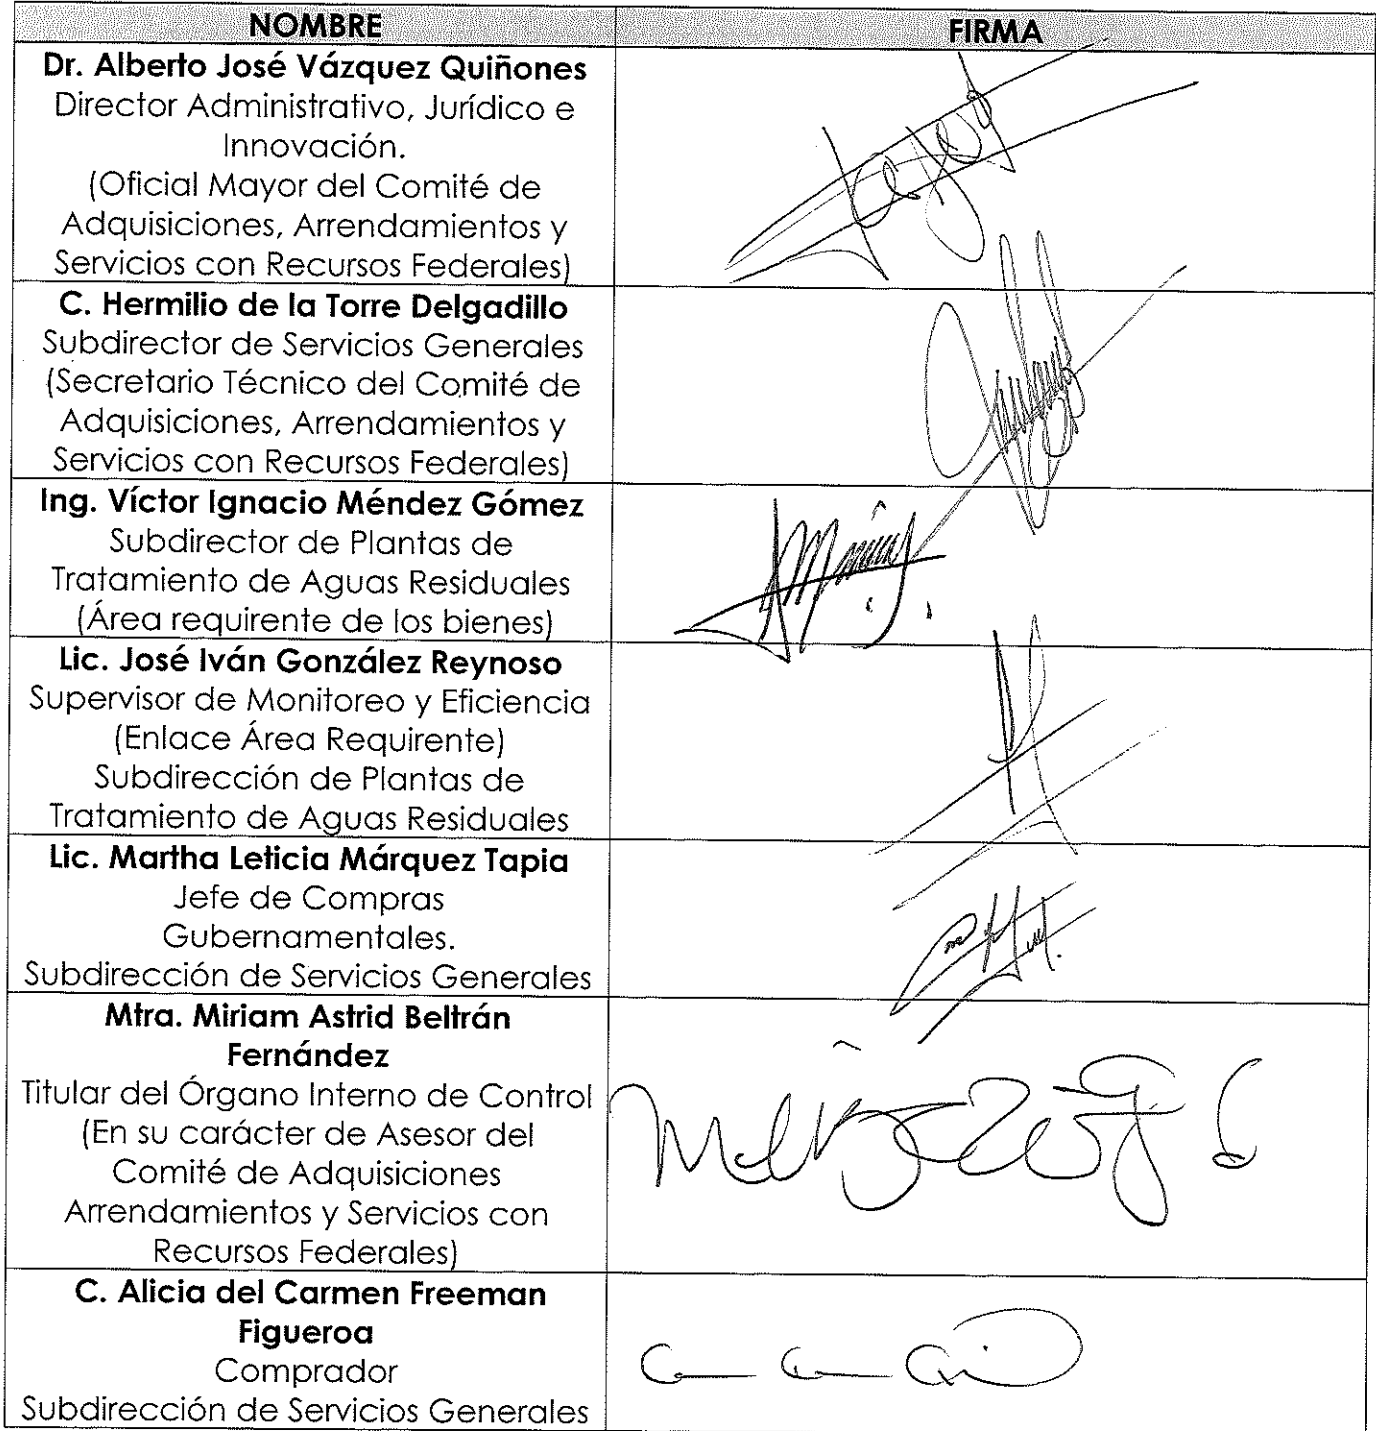 NOMBRE FIRMA
Dr. Alberto José Vázquez Quiñones
Director Administrativo, Jurídico e
Innovación.
(Oficial Mayor del Comité de
Adquisiciones, Arrendamientos y
Servicios con Recursos Federales)
C. Hermilio de la Torre Delgadillo
Subdirector de Servicios Generales
(Secretario Técnico del Comité de
Adquisiciones, Arrendamientos y
Servicios con Recursos Federales)
Ing. Víctor Ignacio Méndez Gómez
Subdirector de Plantas de
Tratamiento de Aguas Residuales
(Área requirente de los bienes)
Lic. José Iván González Reynoso
Supervisor de Monitoreo y Eficiencia
(Enlace Área Requirente)
Subdirección de Plantas de
Tratamiento de Aguas Residuales
Lic. Martha Leticia Márquez Tapia
Jefe de Compras
Gubernamentales.
Subdirección de Servicios Generales
Mtra. Miriam Astrid Beltrán
Fernández
Titular del Órgano Interno de Control
(En su carácter de Asesor del
Comité de Adquisiciones
Arrendamientos y Servicios con
Recursos Federales)
C. Alicia del Carmen Freeman
Figueroa
Comprador
Subdirección de Servicios Generales